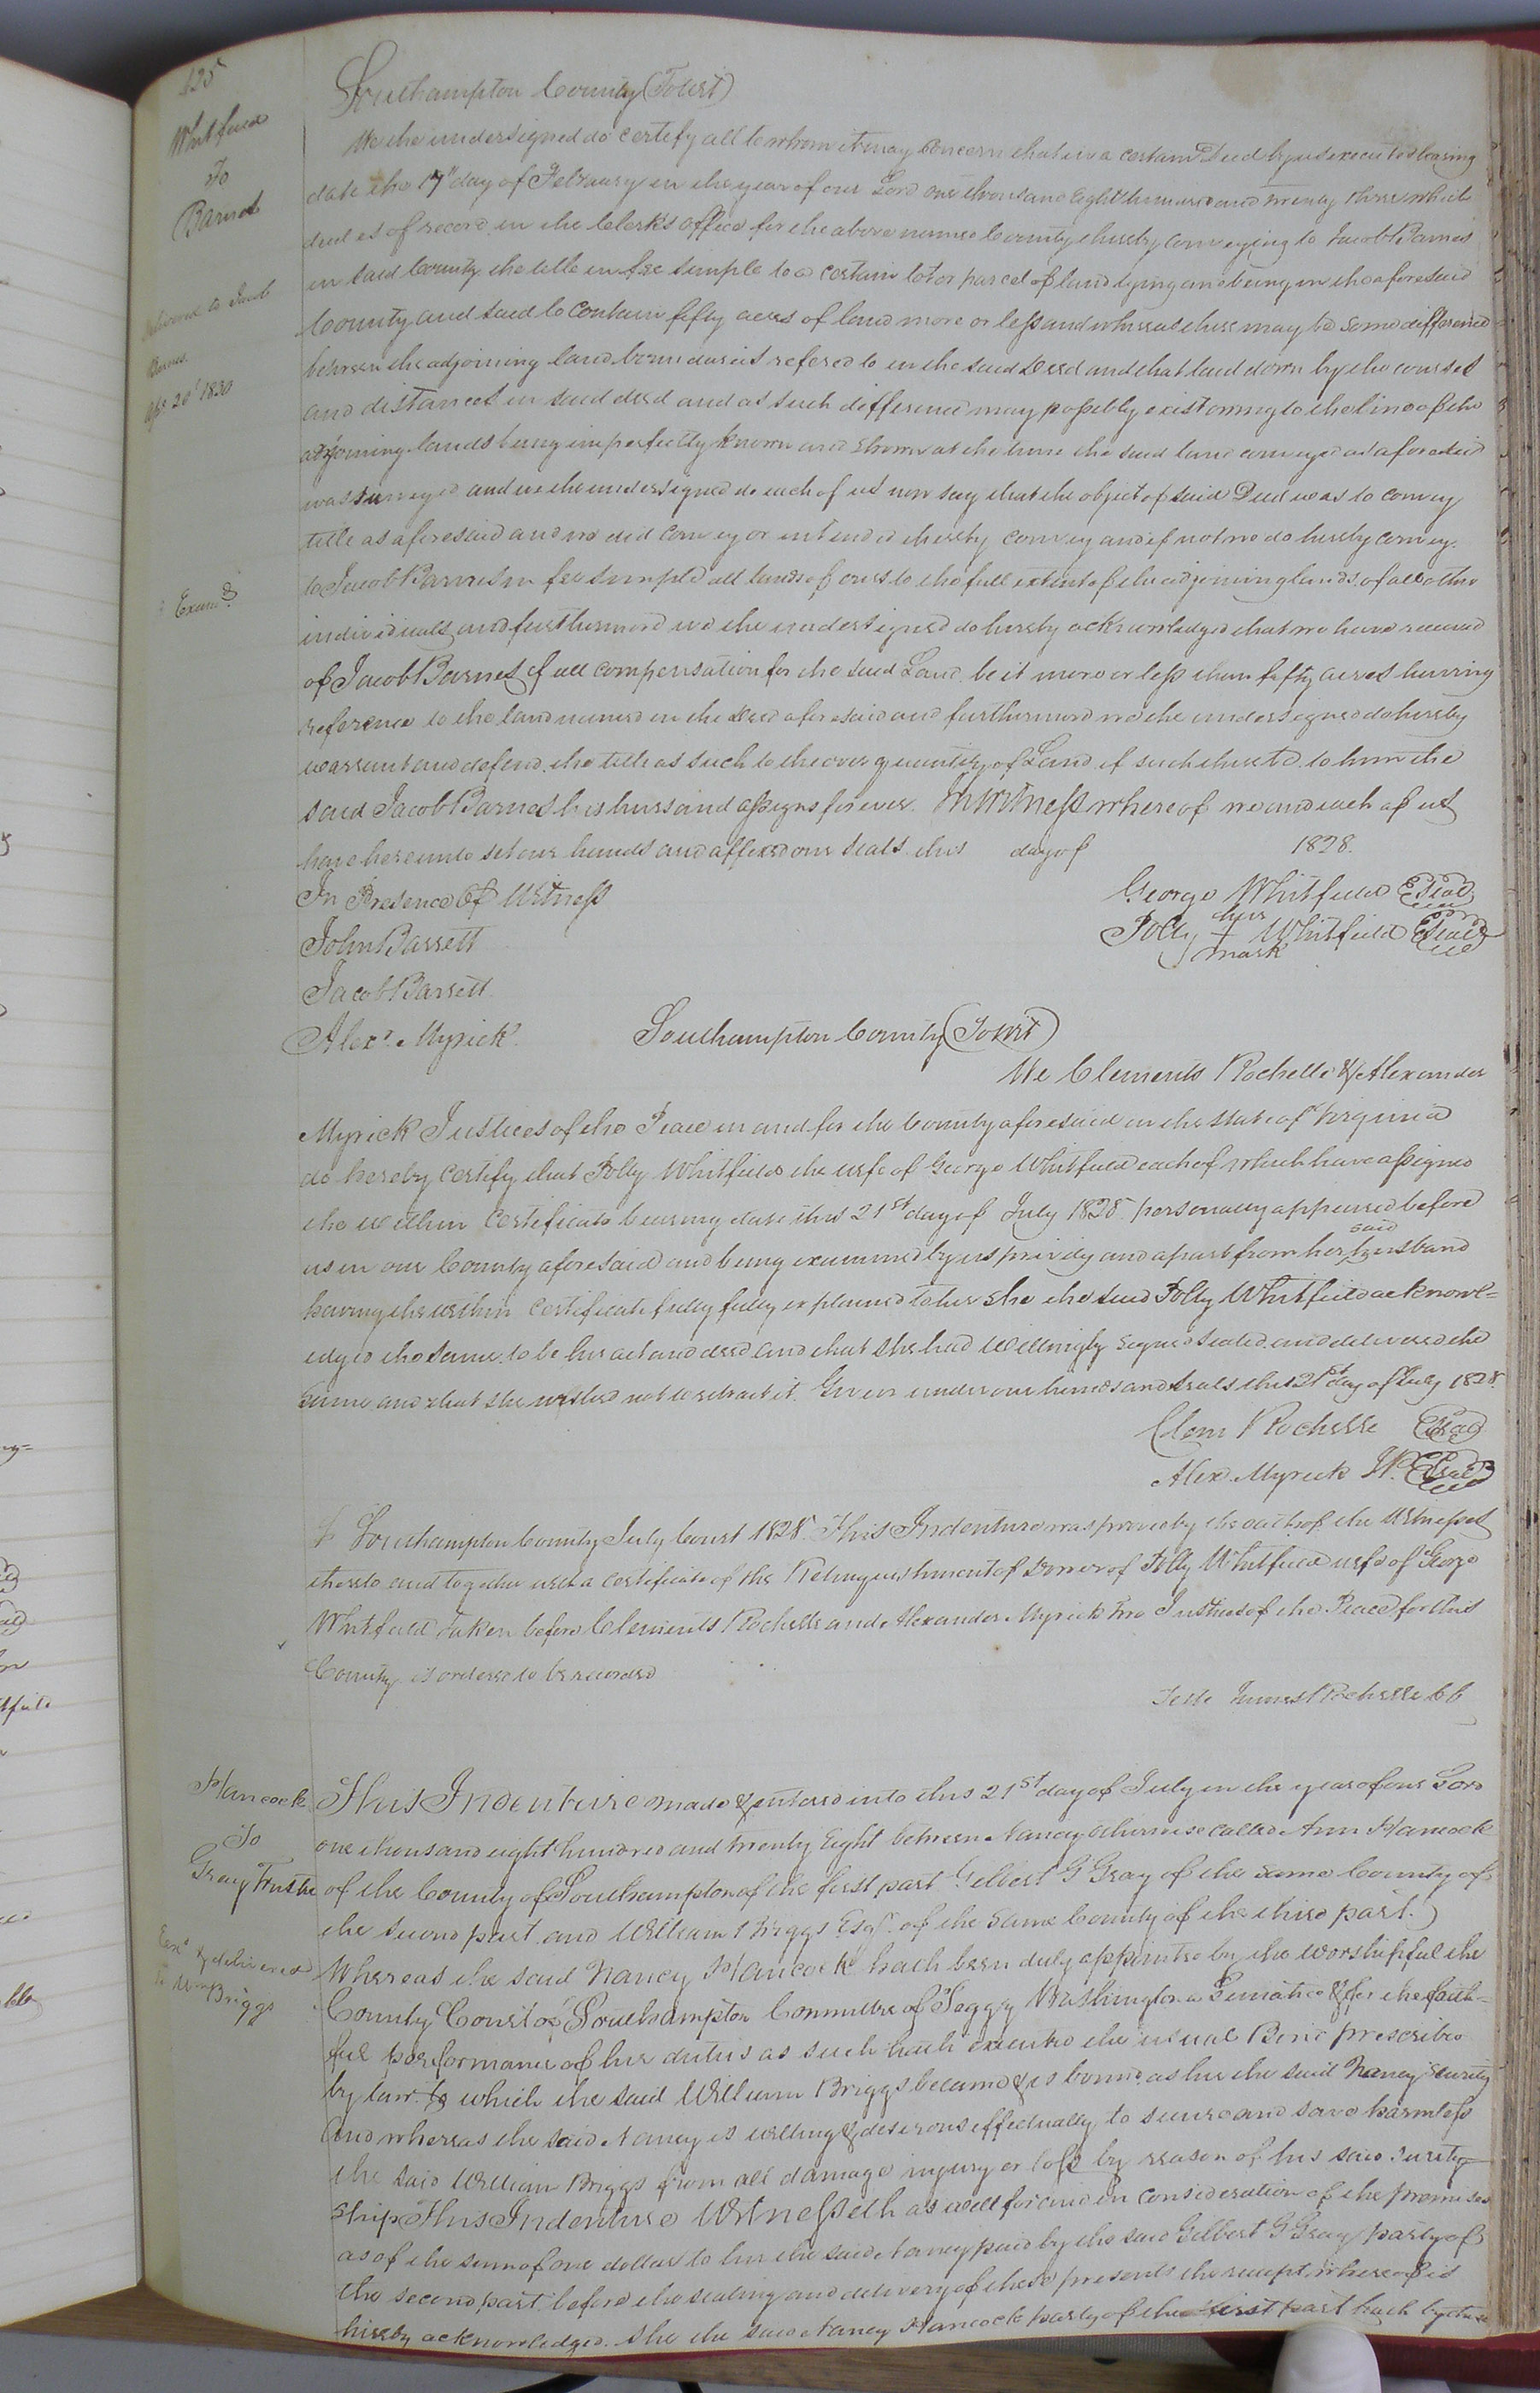 425
Whitfield
To
Barnes
Delivered to Jacob
Barnes
1830
Examd.
Southampton County (Towit)
We the undersigned do certify all to whom it may Concern that in a certain Deed by us executed bearing
date the 17th day of February in the year of our Lord one thousand eight hundred and twenty three which
deed is of record in the Clerk's office for the above named County thereby conveying to Jacob Barnes
in said County the title in fee simple to a certain lot or parcel of land lying and being in the aforesaid
County and said to Contain fifty acres of land more or less and whereas there may be some difference
between the adjoining land boundaries refered to in the said Deed and that laid down by the courses
and distances in said deed and as such difference may possibly exist owing to the lines of the
adjoining lands being imperfectly known and shown at the time the said land conveyed as aforesaid
was surveyed and we the undersigned do each of us now say that the object of said Deed was to convey
title as aforesaid and we did convey or intended thereby convey and if not we do hereby convey
to Jacob Barnes in fee simple all lands of ours to the full extent of the adjoining lands of all other
individuals, and furthermore we the undersigned do hereby acknowledge that we have received
of Jacob Barnes full compensation for the said Land be it more or less than fifty acres having
reference to the land named in the Deed aforesaid and furthermore we the undersigned do hereby
warrant and defend the title as such to the over quantity of Land if such there be to him the
said Jacob Barnes his heirs and assigns forever. In witness whereof we and each of us
have hereunto set our hands and affixed our seals this day of 1828.
In Presence Of Witness
George Whitfield (Seal)
John Barrett
Polly her + mark Whitfield (Seal)
Jacob Barrett
Alexr. Myrick
Southampton County (Towit)
We Clements Rochelle & Alexander
Myrick Justices of the Peace in and for the County aforesaid in the state of Virginia
do hereby certify that Polly Whitfield the wife of George Whitfield each of which have assigned
the within Certificate bearing date this 21st day of July 1828 personally appeared before
us in our County aforesaid and being examined by us privily and apart from her said husband
having the within Certificate fully fully explained to her she the said Polly Whitfield acknowl=
edged the same to be her act and deed and that she had willingly signed sealed and delivered the
same and that she wished not to retract it. Given under our hands and seals this 21st day of July 1828.
Clem Rochelle (Seal)
Alex. Myrick JP. (Seal)
Southampton County July Court 1828. This Indenture was proved by the oaths of the Witnesses
thereto and together with a certificate of the Relinquishment of Dower of Polly Whitfield wife of George
Whitfield Taken before Clements Rochelle and Alexander Myrick two Justices of the Peace for this
County is ordered to be recorded
Teste James Rochelle CC
Hancock
To
Gray Trustee
& delivered
to Wm
Briggs
This Indenture made & entered into this 21st day of July in the year of our Lord
one thousand eight hundred and twenty Eight between Nancy otherwise called Ann Hancock
of the County of Southampton of the first part Gilbert G Gray of the same County of
the second part and William Briggs Esqr. of the same County of the third part.
Whereas the said Nancy Hancock hath been duly appointed by the worshipful the
County Court of Southampton Committee of Peggy Washington a Lunatic & for the faith=
ful performance of her duties as such hath executed the usual Bond prescribed
by law to which the said William Briggs became & is bound as her the said Nancy security
And whereas the said Nancy is willing & desirous effectually to secure and save harmless
the said William Briggs from all damage injury or loss by reason of his said surety
ship This Indenture Witnesseth as well for and in consideration of the premises
as of the sum of one dollar to her the said Nancy paid by the said Gilbert G Gray party of
the second part before the sealing and delivery of these presents the receipt whereof is
hereby acknowledged. She the said Nancy Hancock party of the first part hath by these